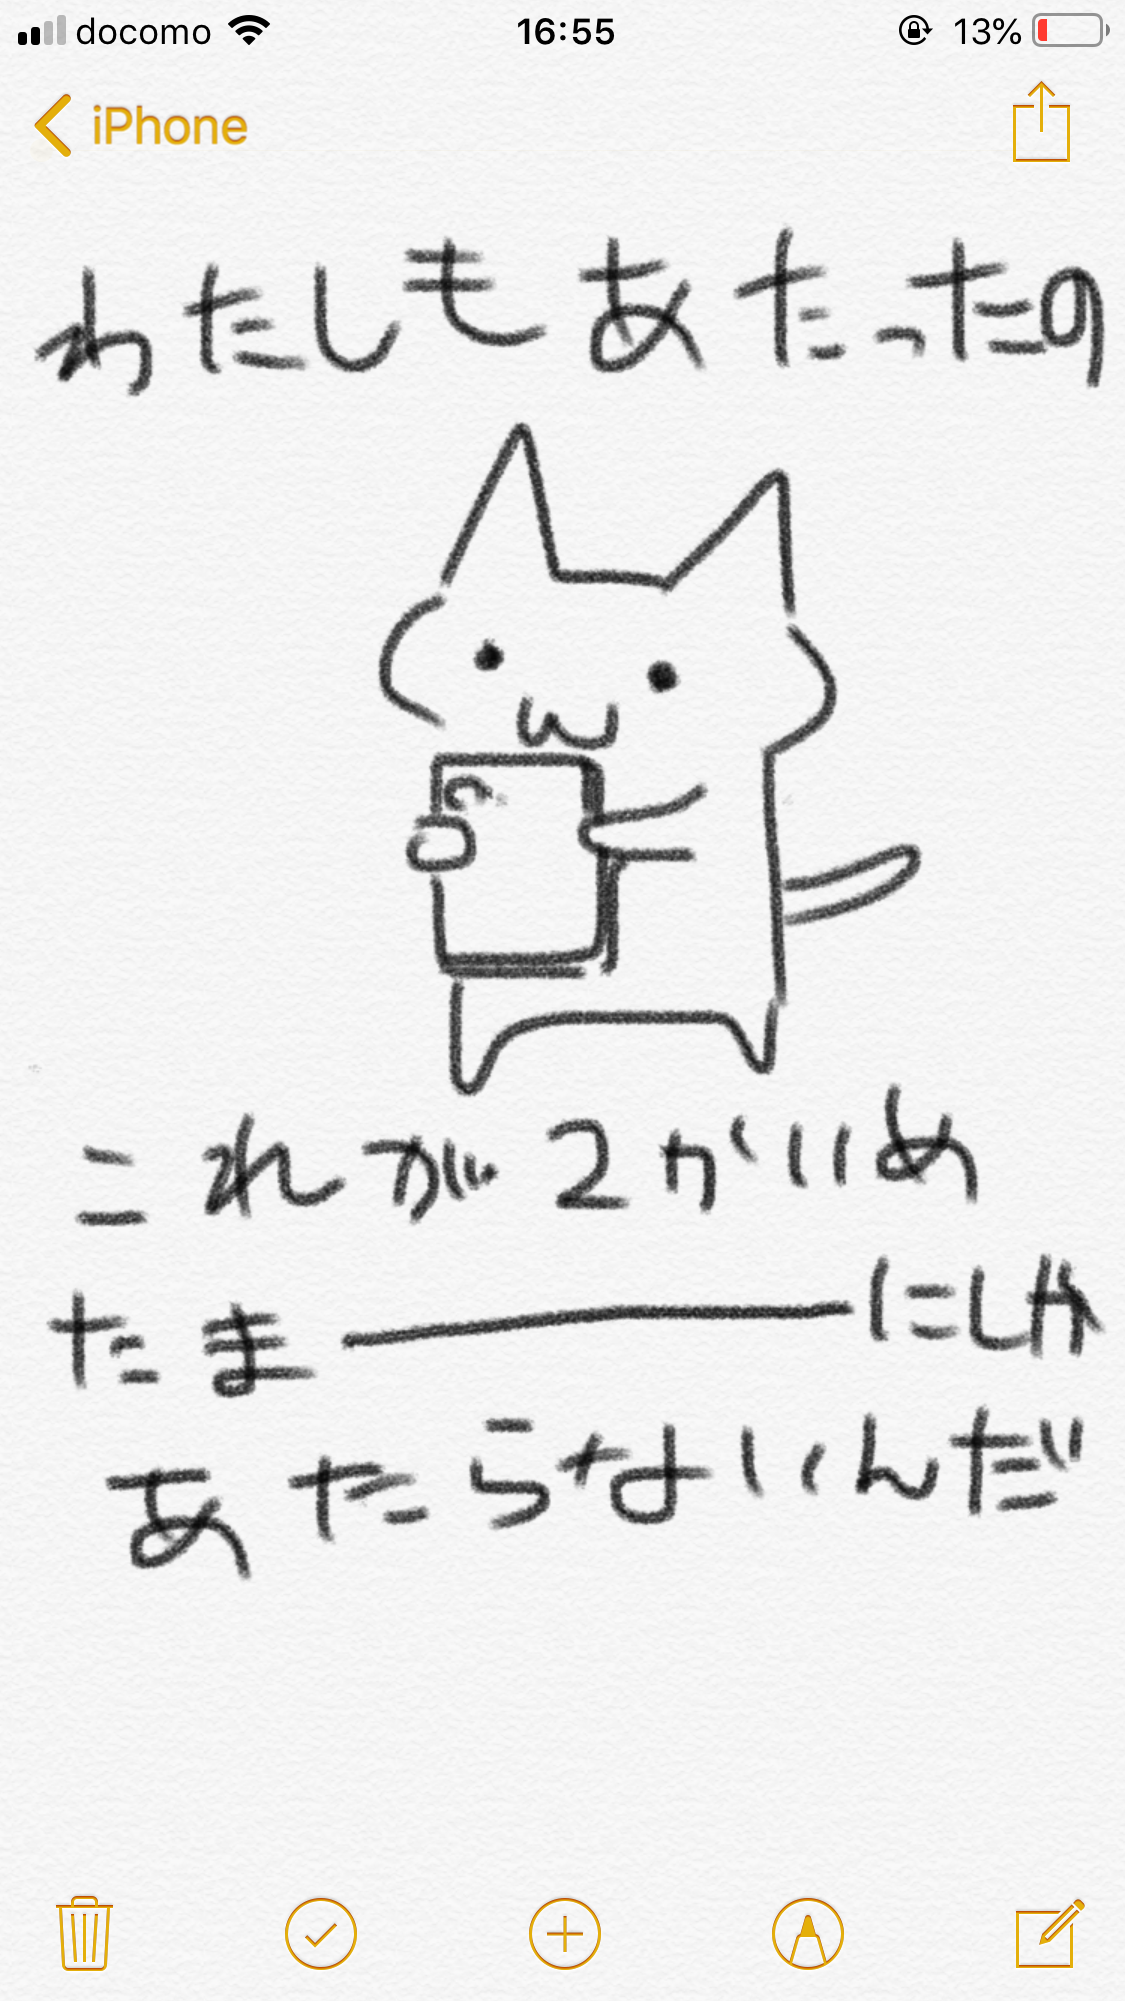 docomo 16:55 13%
iPhone
わたしもあたったの
これが2かいめ
たま━━━にしか
あたらないんだ